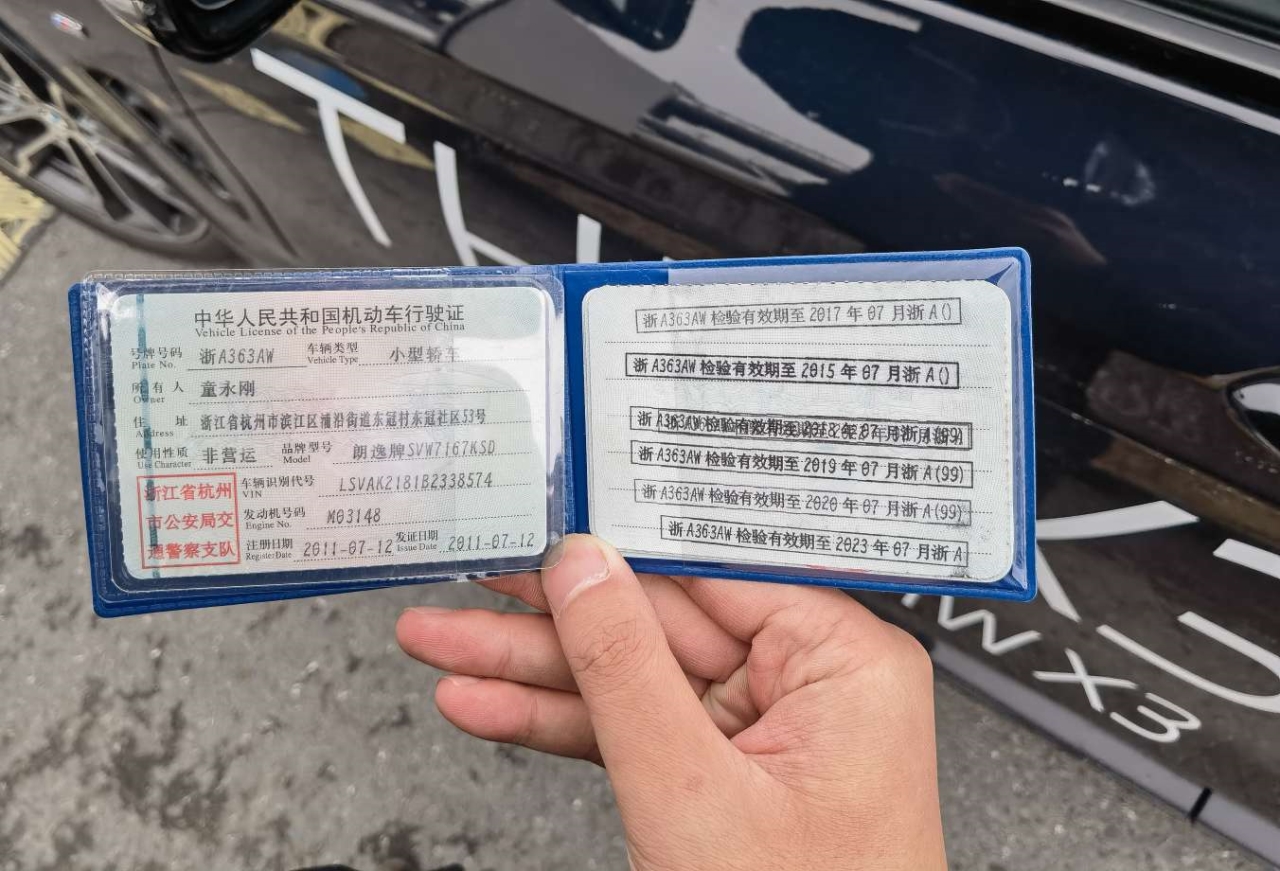 中华人民共和国机动车行驶证
Vehicle License of the People's Republic of China
号牌号码 浙A363AW 车辆类型 小型轿车
Plate No. Vehicle Type
所有人 童永刚
Owner
住址 浙江省杭州市滨江区浦沿街道东冠村东冠社区53号
Address
使用性质 非营运 品牌型号 朗逸牌SVW7167KSD
Use Character Model
浙江省杭州
市公安局交
通警察支队
车辆识别代号 LSVAK2181B2338574
VIN
发动机号码 M03148
Engine No.
注册日期 2011-07-12 发证日期 2011-07-12
Register Date Issue Date
浙A363AW检验有效期至2017年07月浙A()
浙A363AW检验有效期至2015年07月浙A()
浙A363AW检验有效期至2018年07月浙A(99)
浙A363AW检验有效期至2019年07月浙A(99)
浙A363AW检验有效期至2020年07月浙A(99)
浙A363AW检验有效期至2023年07月浙A
TH
X3